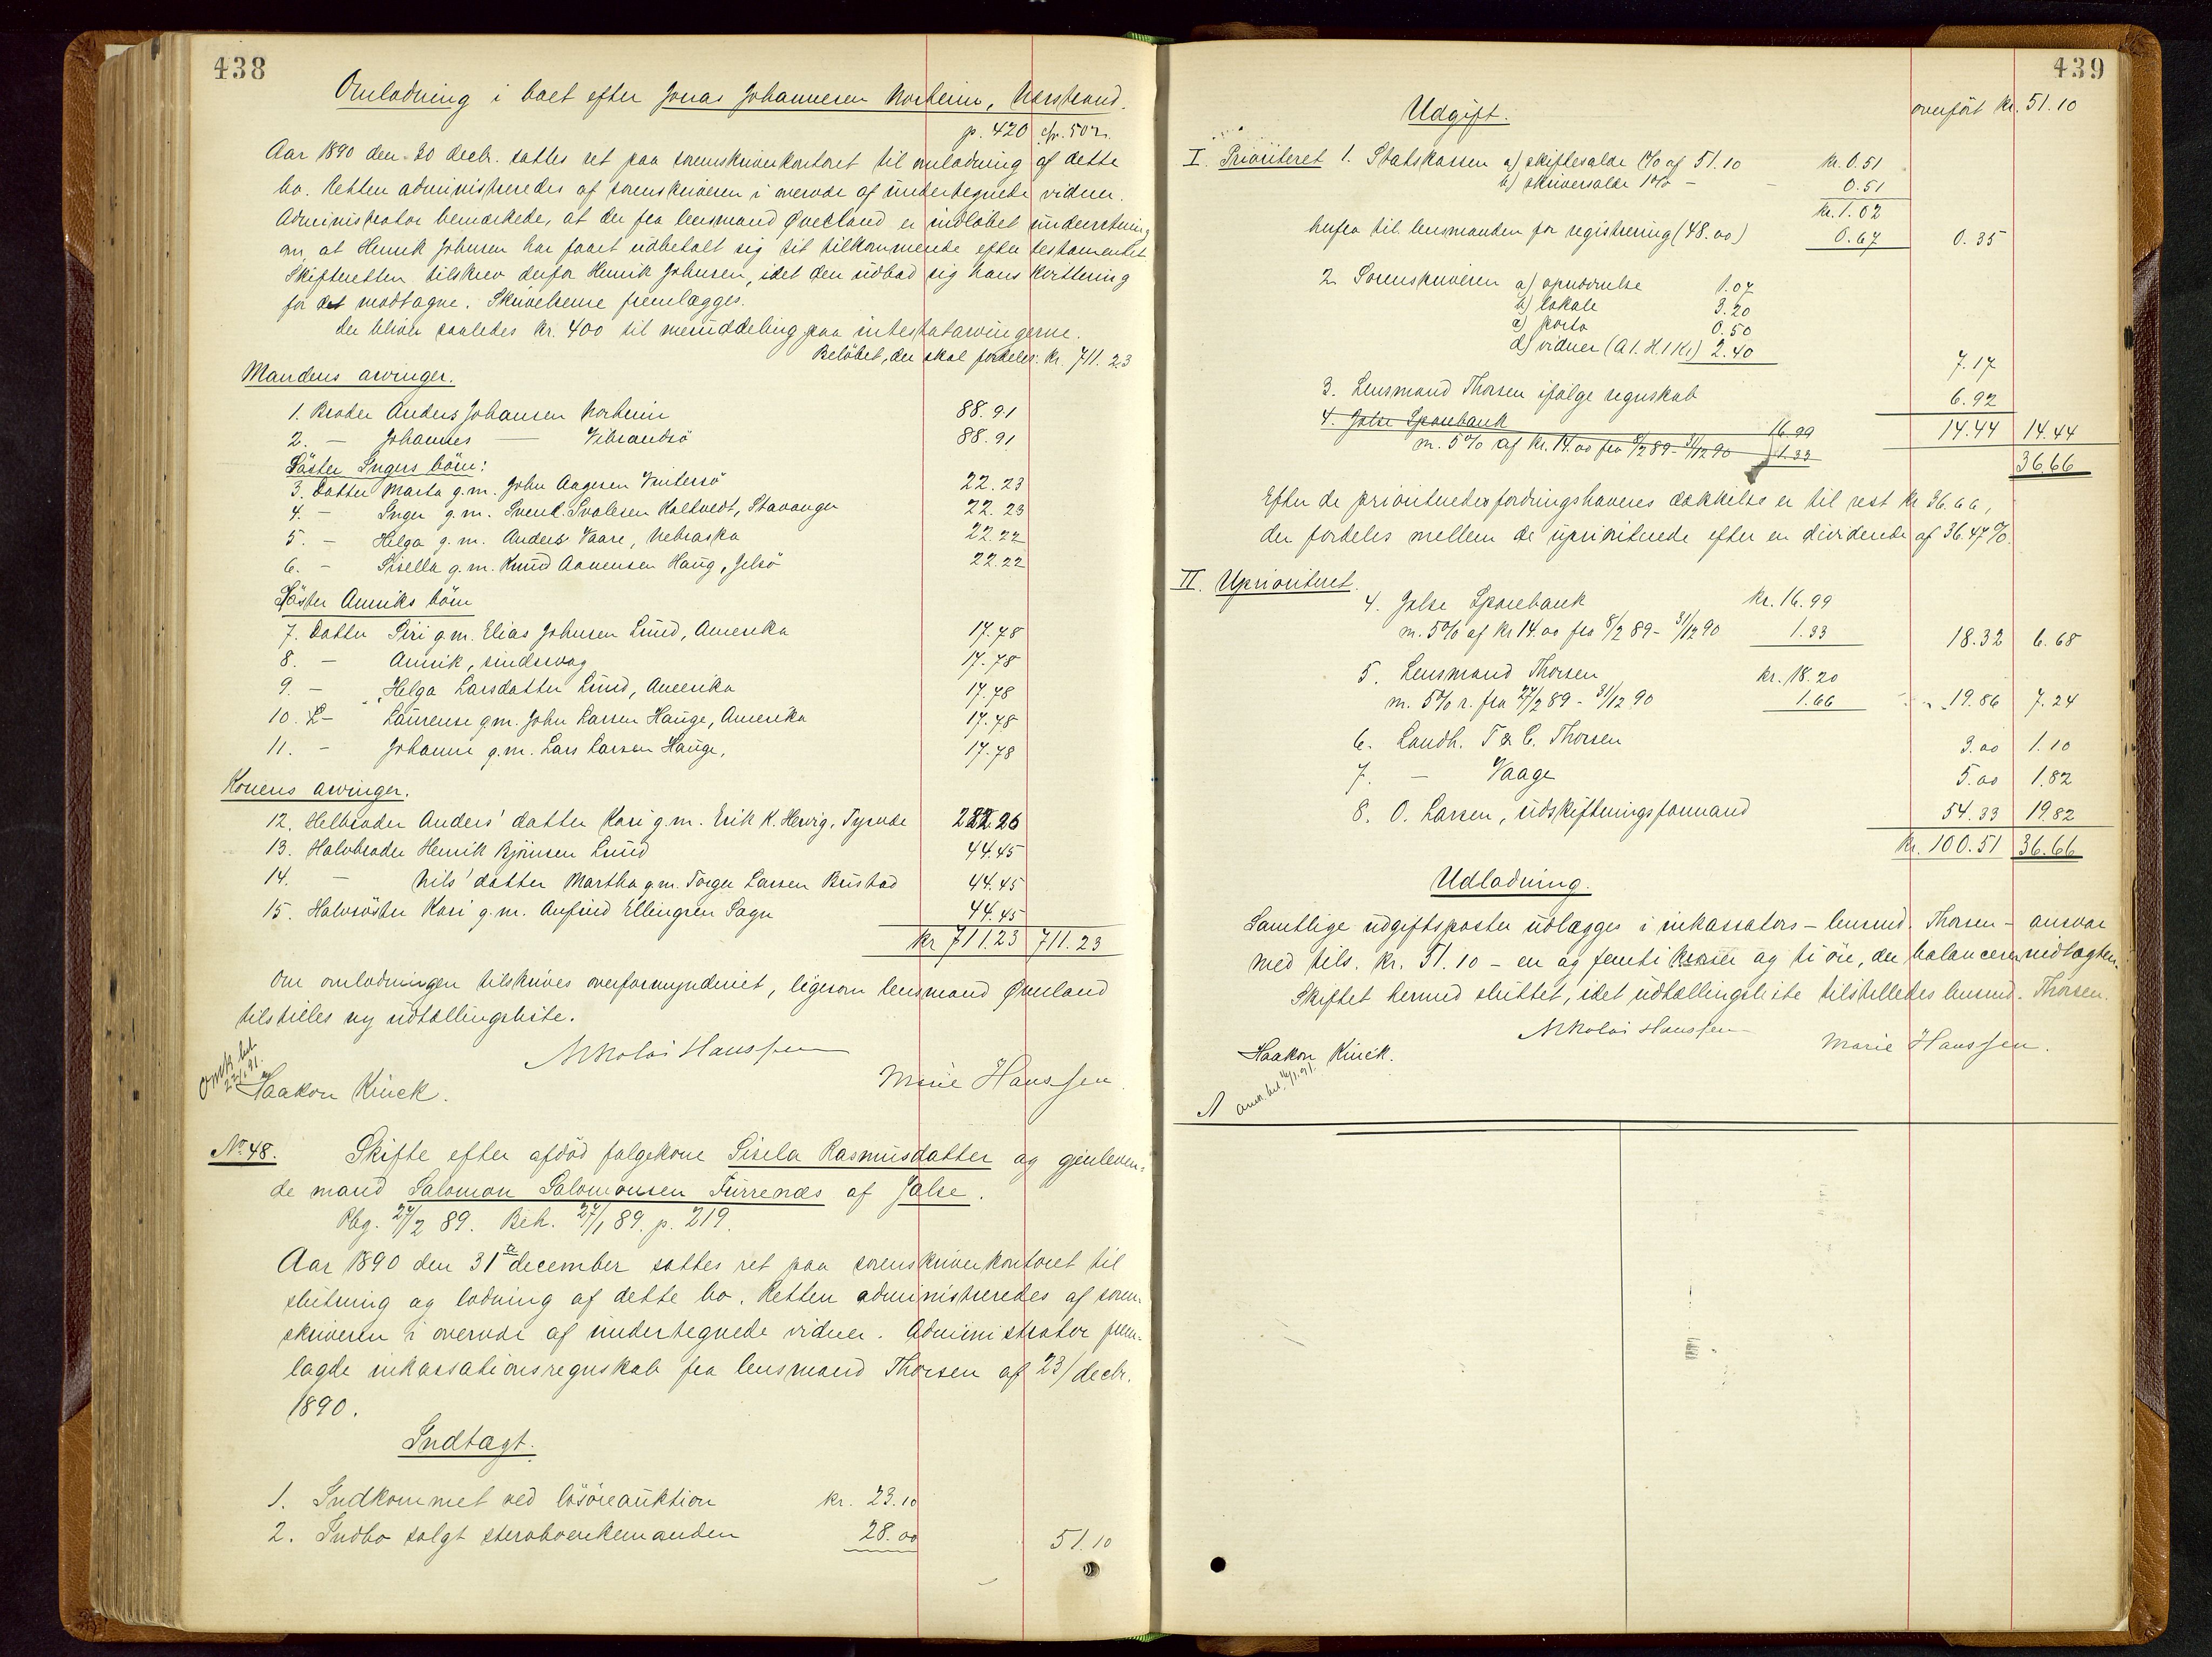 438
Omlodning i boet efter Jonas Johannesen Norheim, Nærstrand.
p. 420 cfr. 502.
Aar 1890 den 30 decbr. sattes ret paa sorenskriverkontoret til omlodning af dette
bo. Retten administreredes af sorenskriveren i overvær af undertegnede vidner.
Administrator bemærkede, at der fra lensmand Qveeland er indløbet underretning
om, at Henrik Johnsen har faaet udbetalt sig sit tilkommende efter testamentet
Skifteretten tilskrev derfor Henrik Johnsen, idet den udbad sig hans kvittering
for det modtagne. Skrivelserne fremlægges.
Der bliver saaledes kr. 400 til meruddeling paa intestatarvingerne.
Beløbet, der skal fordeles: kr. 711.23
Mandens arvinger.
1. Broder Anders Johansen Norheim 88.91
2. — Johannes — Vibrandsö 88.91
Söster Ingers börn:
3. Datter Marta g.m. John Aagesen Vintersö 22.23
4. — Inger g.m. Svend Svalesen Kaltvedt, Stavanger 22.23
5. — Helga g.m. Anders Vaare, Nebraska 22.22
6. — Sisella g.m. Knud Aanensen Haug, Jelsö 22.22
Söster Anniks börn
7. Datter Siri g.m. Elias Johnsen Lund, Amerika 17.78
8. — Annik, sindssvag 17.78
9. — Helga Larsdatter Lund, Amerika 17.78
10. — Laurense g.m. John Larsen Hauge, Amerika 17.78
11. — Johanne g.m. Lars Larsen Hauge, 17.78
Konens arvinger.
12. Helbroder Anders' datter Kari g.m. Erik K. Hervig, Tysvær 222.26
13. Halvbroder Henrik Björnsen Lund 44.45
14. — Nils' datter Martha g.m. Torger Larsen Bustad 44.45
15. Halvsöster Kari g.m. Anfind Ellingsen Sagen 44.45
kr 711.23 711.23
Om omlodningen tilskrives overformynderiet, ligesom lensmand Qveeland
tilstilles ny udtællingsliste.
Nikolai Hanssen
Haakon Kinck.
Marie Hanssen.
No 48. Skifte efter afdöd folgekone Sisela Rasmusdatter og gjenleven-
de mand Salomon Salomonsen Furrenæs af Jelse.
Rbg. 27/2 89. Beh. 27/1 89. p. 219.
Aar 1890 den 31 december sattes ret paa sorenskriverkontoret til
slutning og lodning af dette bo. Retten administreredes af soren-
skriveren i overvær af undertegnede vidner. Administrator frem-
lagde inkassationsregnskab fra lensmand Thorsen af 23/decbr.
1890.
Indtægt.
1. Indkommet ved lösöreauktion kr. 23.10
2. Indbo solgt stervboenkemanden 28.00 51.10
439
overfört kr. 51.10
Udgift.
I. Prioriteret 1. Statskassen a) skiftesalær 1% af 51.10 kr. 0.51
b) skriversalær 1% — — 0.51
kr. 1.02
herfra til lensmanden for registrering (48.00) 0.67 0.35
2. Sorenskriveren a) opnævnelse 1.07
b) lokale 3.20
c) porto 0.50
d) vidner (A 1. H. 1 kr.) 2.40
7.17
3. Lensmand Thorsen ifölge regnskab 6.92
4. Jelse Sparebank 16.99 14.44 14.44
m. 5% af kr. 14.00 fra 8/2 89 - 31/12 90 1.33
36.66
Efter de prioriterede fordringshaveres dækkelse er til rest kr 36.66,
der fordeles mellem de uprioriterede efter en dividende af 36.47%.
II. Uprioriteret.
4. Jelse Sparebank kr. 16.99
m. 5% af kr 14.00 fra 8/2 89 - 31/12 90 1.33 18.32 6.68
5. Lensmand Thorsen kr. 18.20
m. 5% r. fra 27/2 89 - 31/12 90 1.66 19.86 7.24
6. Landh. T & C. Thorsen 3.00 1.10
7. — Vaage 5.00 1.82
8. O. Larsen, udskiftningsformand 54.33 19.82
kr. 100.51 36.66
Udlodning.
Samtlige udgiftsposter udlægges i inkassators - lensmd. Thorsen - ansvar
med tils. kr. 51.10 - en og femti kroner og ti öre, der balancerer indtægten.
Skiftet hermed sluttet, idet udtællingsliste tilstilledes lensmd. Thorsen.
Nikolai Hanssen
Haakon Kinck.
Marie Hanssen.